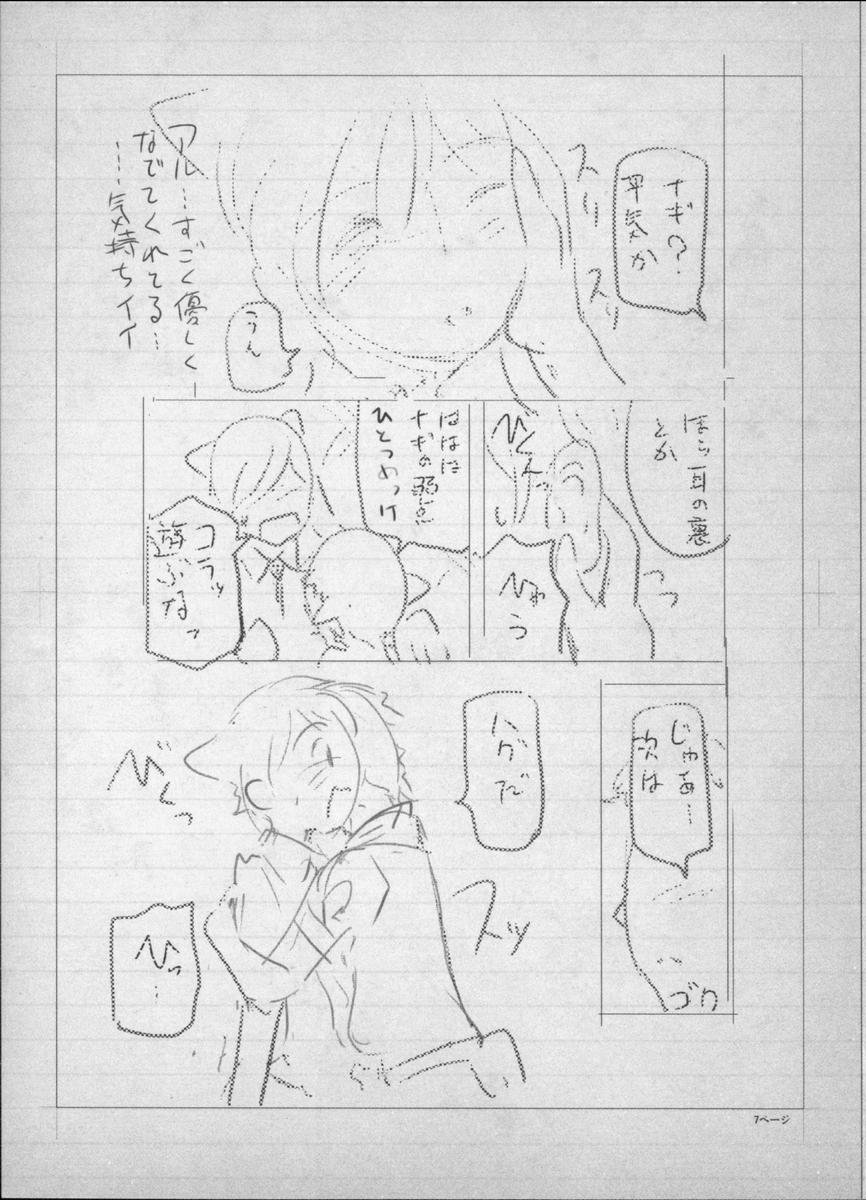 ナギ?
平気か
スリ
スリ
うん
アル…すごく優しく
なでてくれてる…
…気持ちイイ
ほら耳の裏
とか
びくんっ
ひゃう
ははは
ナギの弱点
ひとつめっけ
コラッ
遊ぶなッ
じゃあ…
次は
ゴク
ハグだ
スッ
びくっ
ひっ…
7ページ